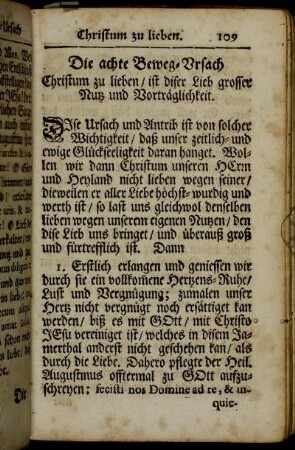 Christum zu lieben. 109
Die achte Beweg-Ursach
Christum zu lieben / ist diser Lieb grosser
Nutz und Vorträglichkeit.
DIse Ursach und Antrib ist von solcher
Wichtigkeit / daß unser zeitlich- und
ewige Glückseeligkeit daran hanget. Wol-
len wir dann Christum unseren HErrn
und Heyland nicht lieben wegen seiner /
dieweilen er aller Liebe höchst-wurdig und
werth ist / so last uns gleichwol denselben
lieben wegen unserem eigenen Nutzen / den
dise Lieb uns bringet / und überauß groß
und fürtrefflich ist. Dann
1. Erstlich erlangen und geniessen wir
durch sie ein vollkom̃ene Hertzens-Ruhe /
Lust und Vergnügung; zumalen unser
Hertz nicht vergnügt noch ersättiget kan
werden / biß es mit GOtt / mit Christo
JESU vereiniget ist / welches in disem Ja-
merthal anderst nicht geschehen kan / als
durch die Liebe. Dahero pflegte der Heil.
Augustinus offtermal zu GOtt aufzu-
schreyen: fecisti nos Domine ad te, & in-
quie-
Die